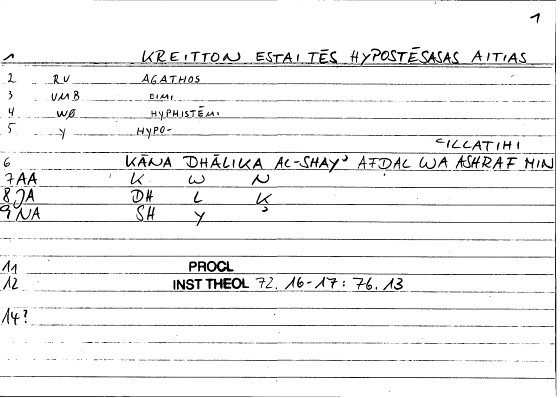 1
1 KREITTON ESTAI TĒS HYPOSTĒSASĒS AITIAS
2 RV AGATHOS
3 VMB EIMI
4 WØ HYPHISTĒMI
5 Y HYPO-
ʿILLATIHI
6 KĀNA DHĀLIKA AL-SHAYʾ AFDAL WA ASHRAF MIN
7 AA K W N
8 JA DH L K
9 NA SH Y ʾ
11 PROCL
12 INST THEOL 72. 16-17: 76.13
14?